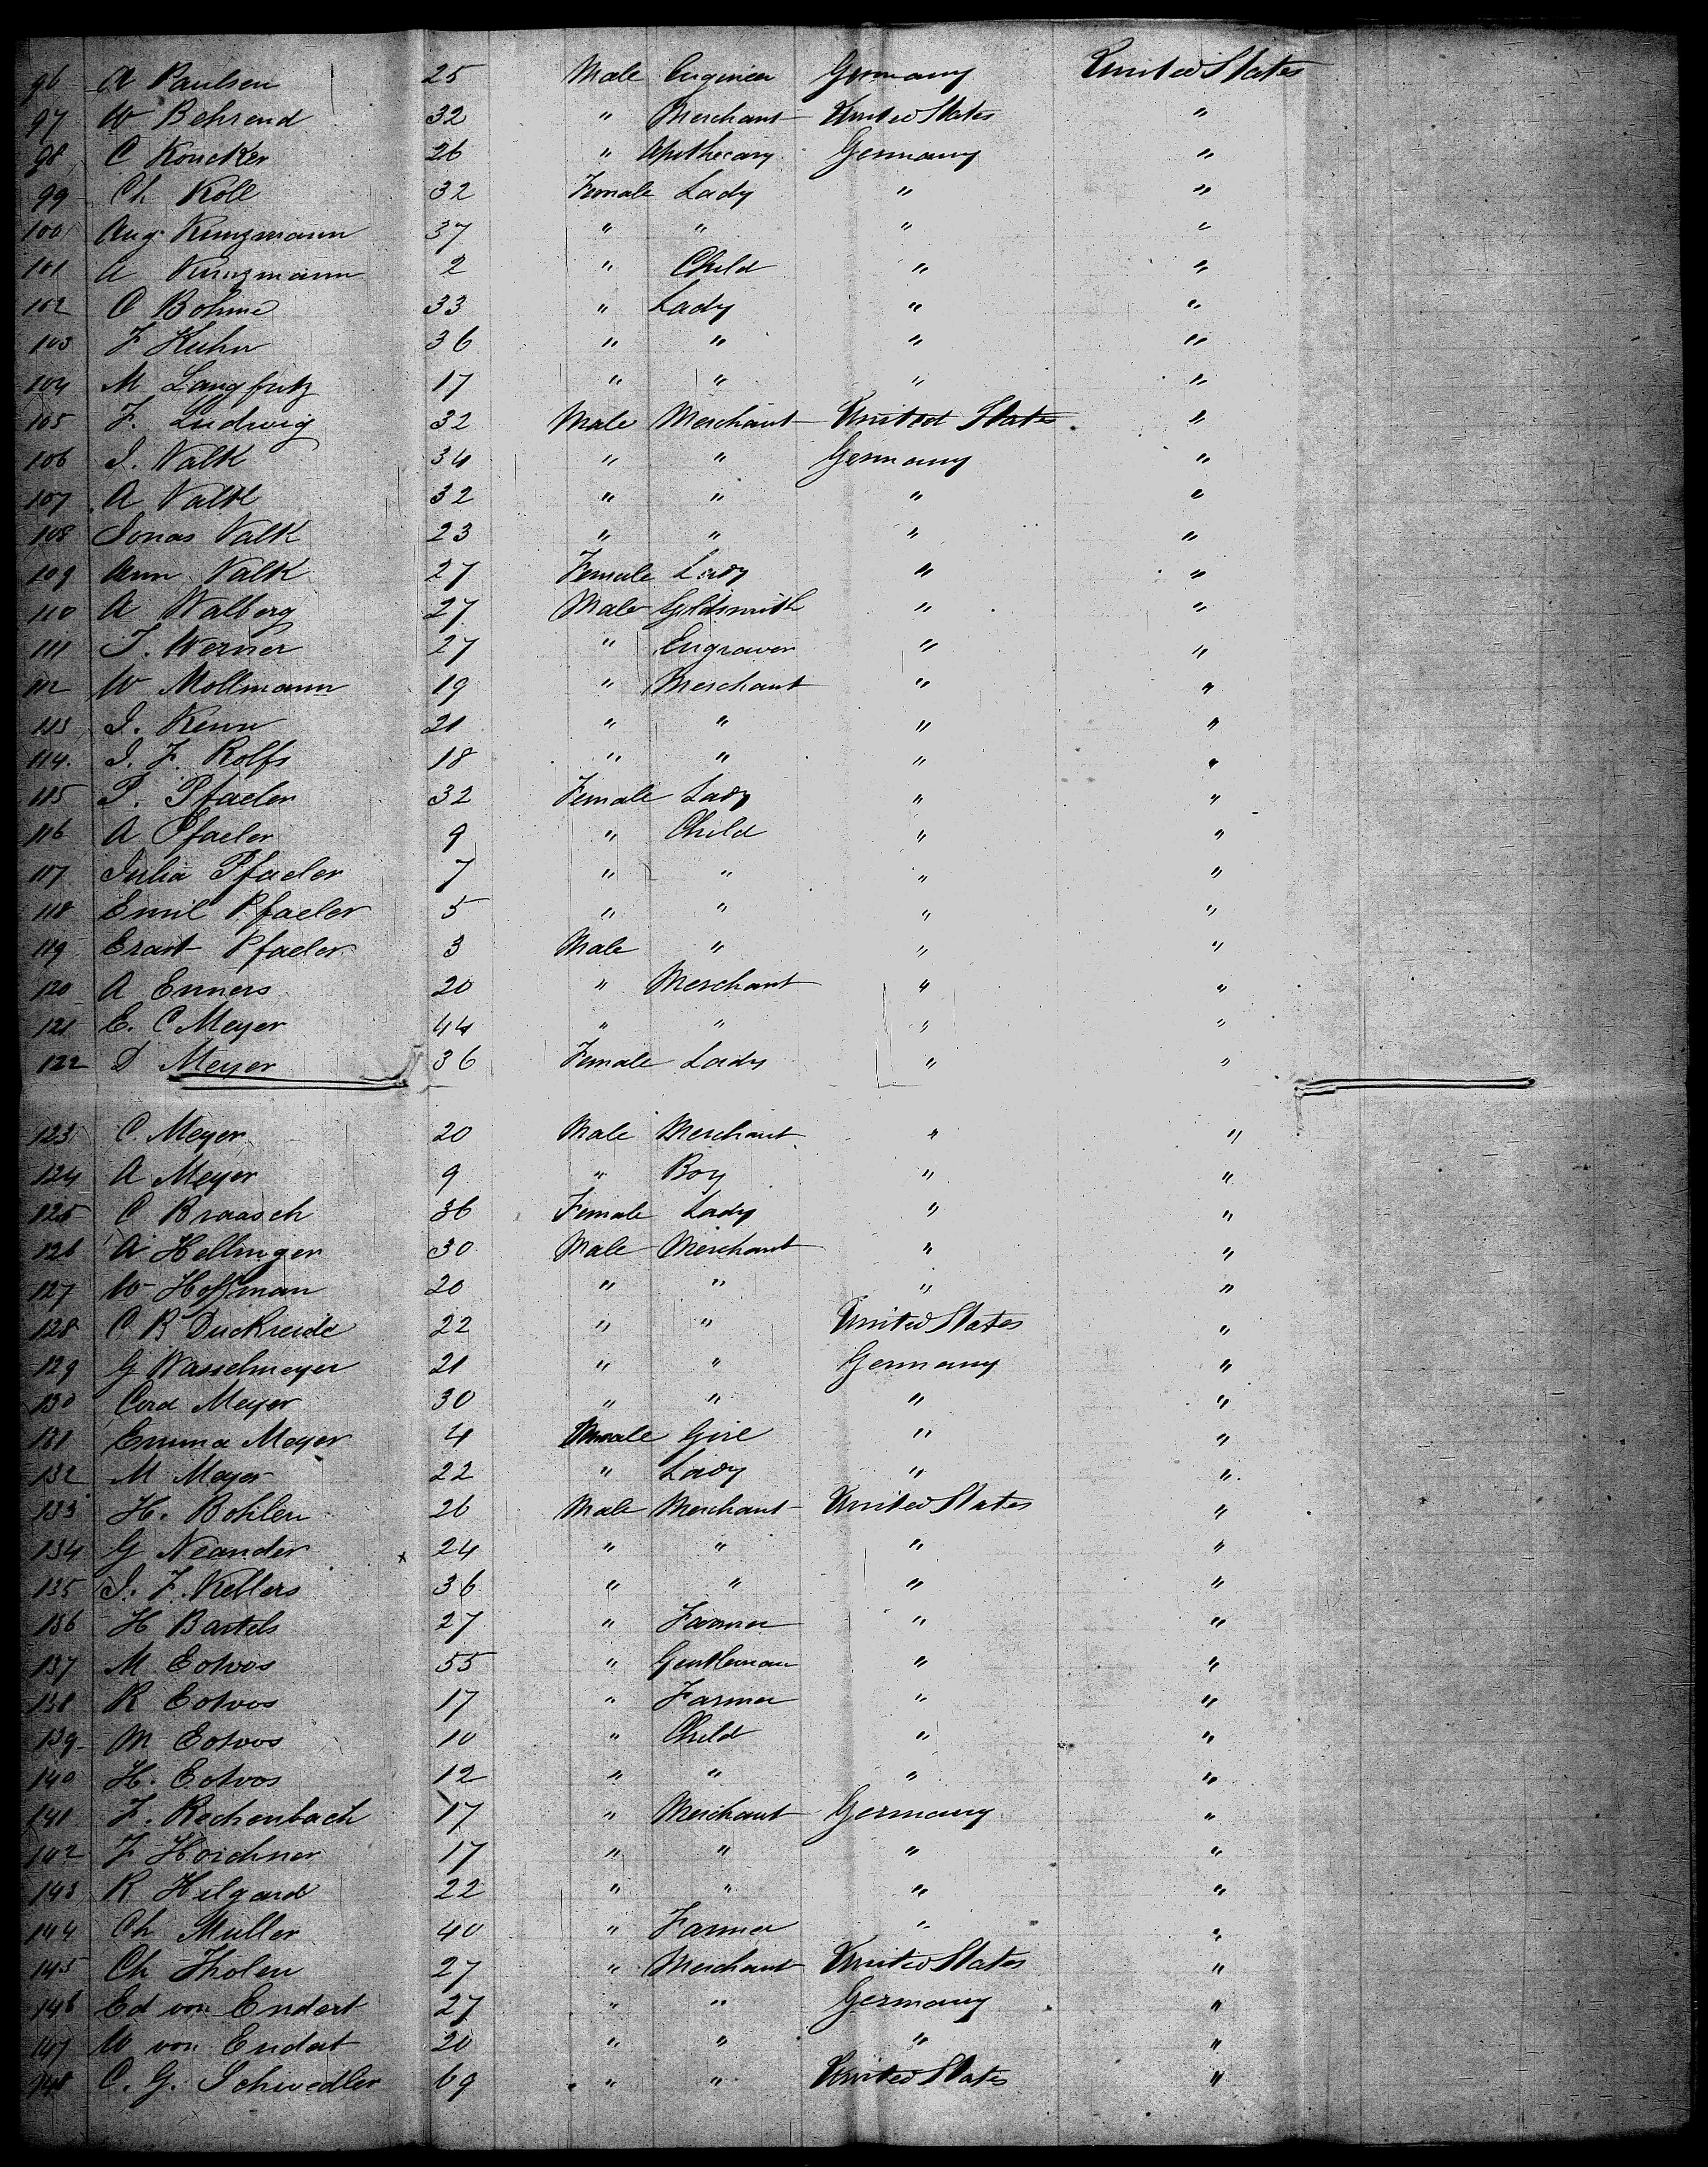 96 A Paulsen 25 Male Engineer Germany United States
97 W Behrend 32 " Merchant United States "
98 C Koncker 26 " Apothecary Germany "
99 Ch Koll 32 Female Lady " "
100 Aug. Kunzmann 37 " " " "
101 A Kunzmann 2 " Child " "
102 C Bohme 33 " Lady " "
103 F Kuhn 36 " " " "
104 M Langfritz 17 " " " "
105 F. Ludwig 32 Male Merchant United States "
106 I. Valk 34 " " Germany "
107 A Valk 32 " " " "
108 Jonas Valk 23 " " " "
109 Ann Valk 27 Female Lady " "
110 A Walberg 27 Male Goldsmith " "
111 T. Werner 27 " Engraver " "
112 W Mollmann 19 " Merchant " "
113 I. Kenn 21 " " " "
114. I. F. Rolfs 18 " " " "
115 P. Pfaeler 32 Female Lady " "
116 A Pfaeler 9 " Child " "
117 Julia Pfaeler 7 " " " "
118 Emil Pfaeler 5 " " " "
119 Ernst Pfaeler 3 Male " " "
120 A Enners 20 " Merchant " "
121 E. C Meyer 44 " " " "
122 D Meyer 36 Female Lady " "
123 C. Meyer 20 Male Merchant " "
124 A Meyer 9 " Boy " "
125 C Braasch 36 Female Lady " "
126 A Hellinger 30 Male Merchant " "
127 W Hoffman 20 " " " "
128 C R 22 " " United States "
129 G Wasselmeyer 21 " " Germany "
130 Cord Meyer 30 " " " "
131 Emma Meyer 4 Female Girl " "
132 M Meyer 22 " Lady " "
133 H. Bohlen 26 Male Merchant United States "
134 G Neander x 24 " " " "
135 I. F. Kellers 36 " " " "
136 H Bartels 27 " Farmer " "
137 M Eotvos 55 " Gentleman " "
138 R Eotvos 17 " Farmer " "
139 M Eotvos 10 " Child " "
140 H. Eotvos 12 " " " "
141 F. Rechenbach 17 " Merchant Germany "
142 F Hoichner 17 " " " "
143 R Hilgard 22 " " " "
144 Ch Muller 40 " Farmer " "
145 Ch Tholen 27 " Merchant United States "
146 Ed von Endert 27 " " Germany "
147 W von Endert 20 " " " "
148 C. G. Schwedler 69 " " United States "